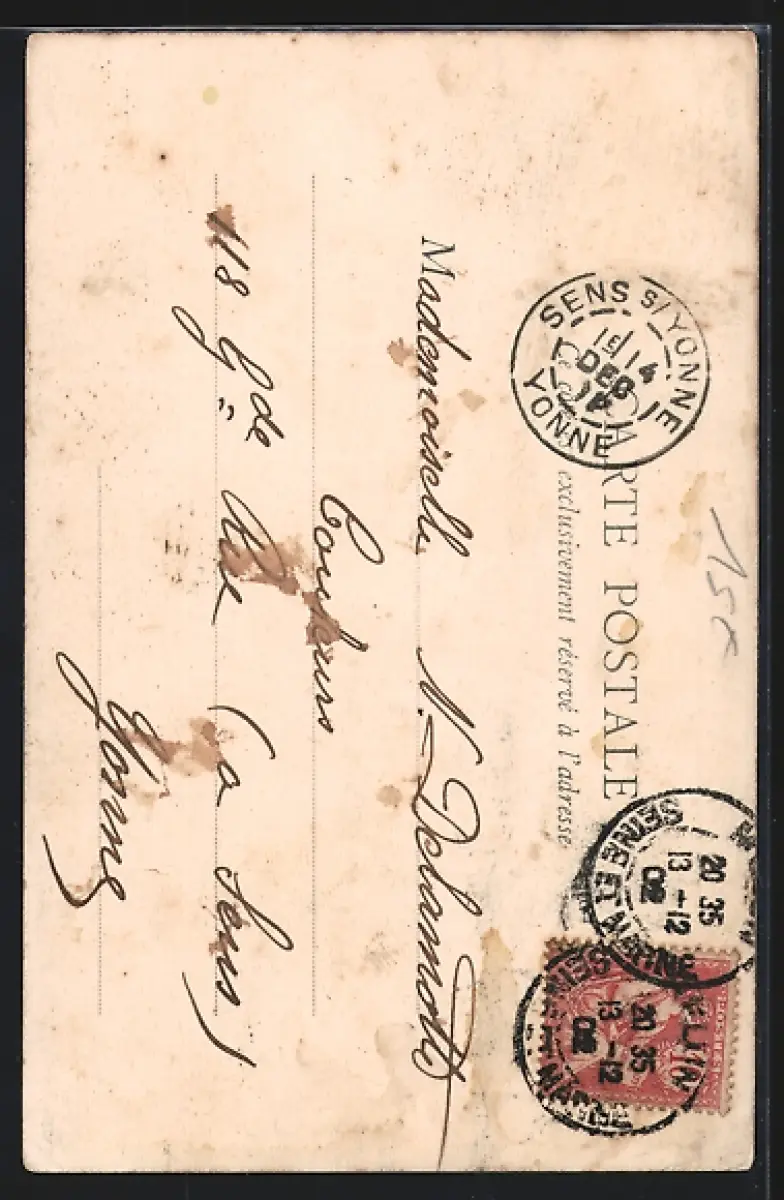 CARTE POSTALE
Ce côté exclusivement réservé à l'adresse
SENS S/YONNE
15 14
DEC
YONNE
MELUN
20 35
13 - 12
02
SEINE ET MARNE
MELUN
20 35
13 - 12
02
SEINE ET MARNE
Mademoiselle N. Delamotte
118 Gde Rue (a Sens)
Yonne